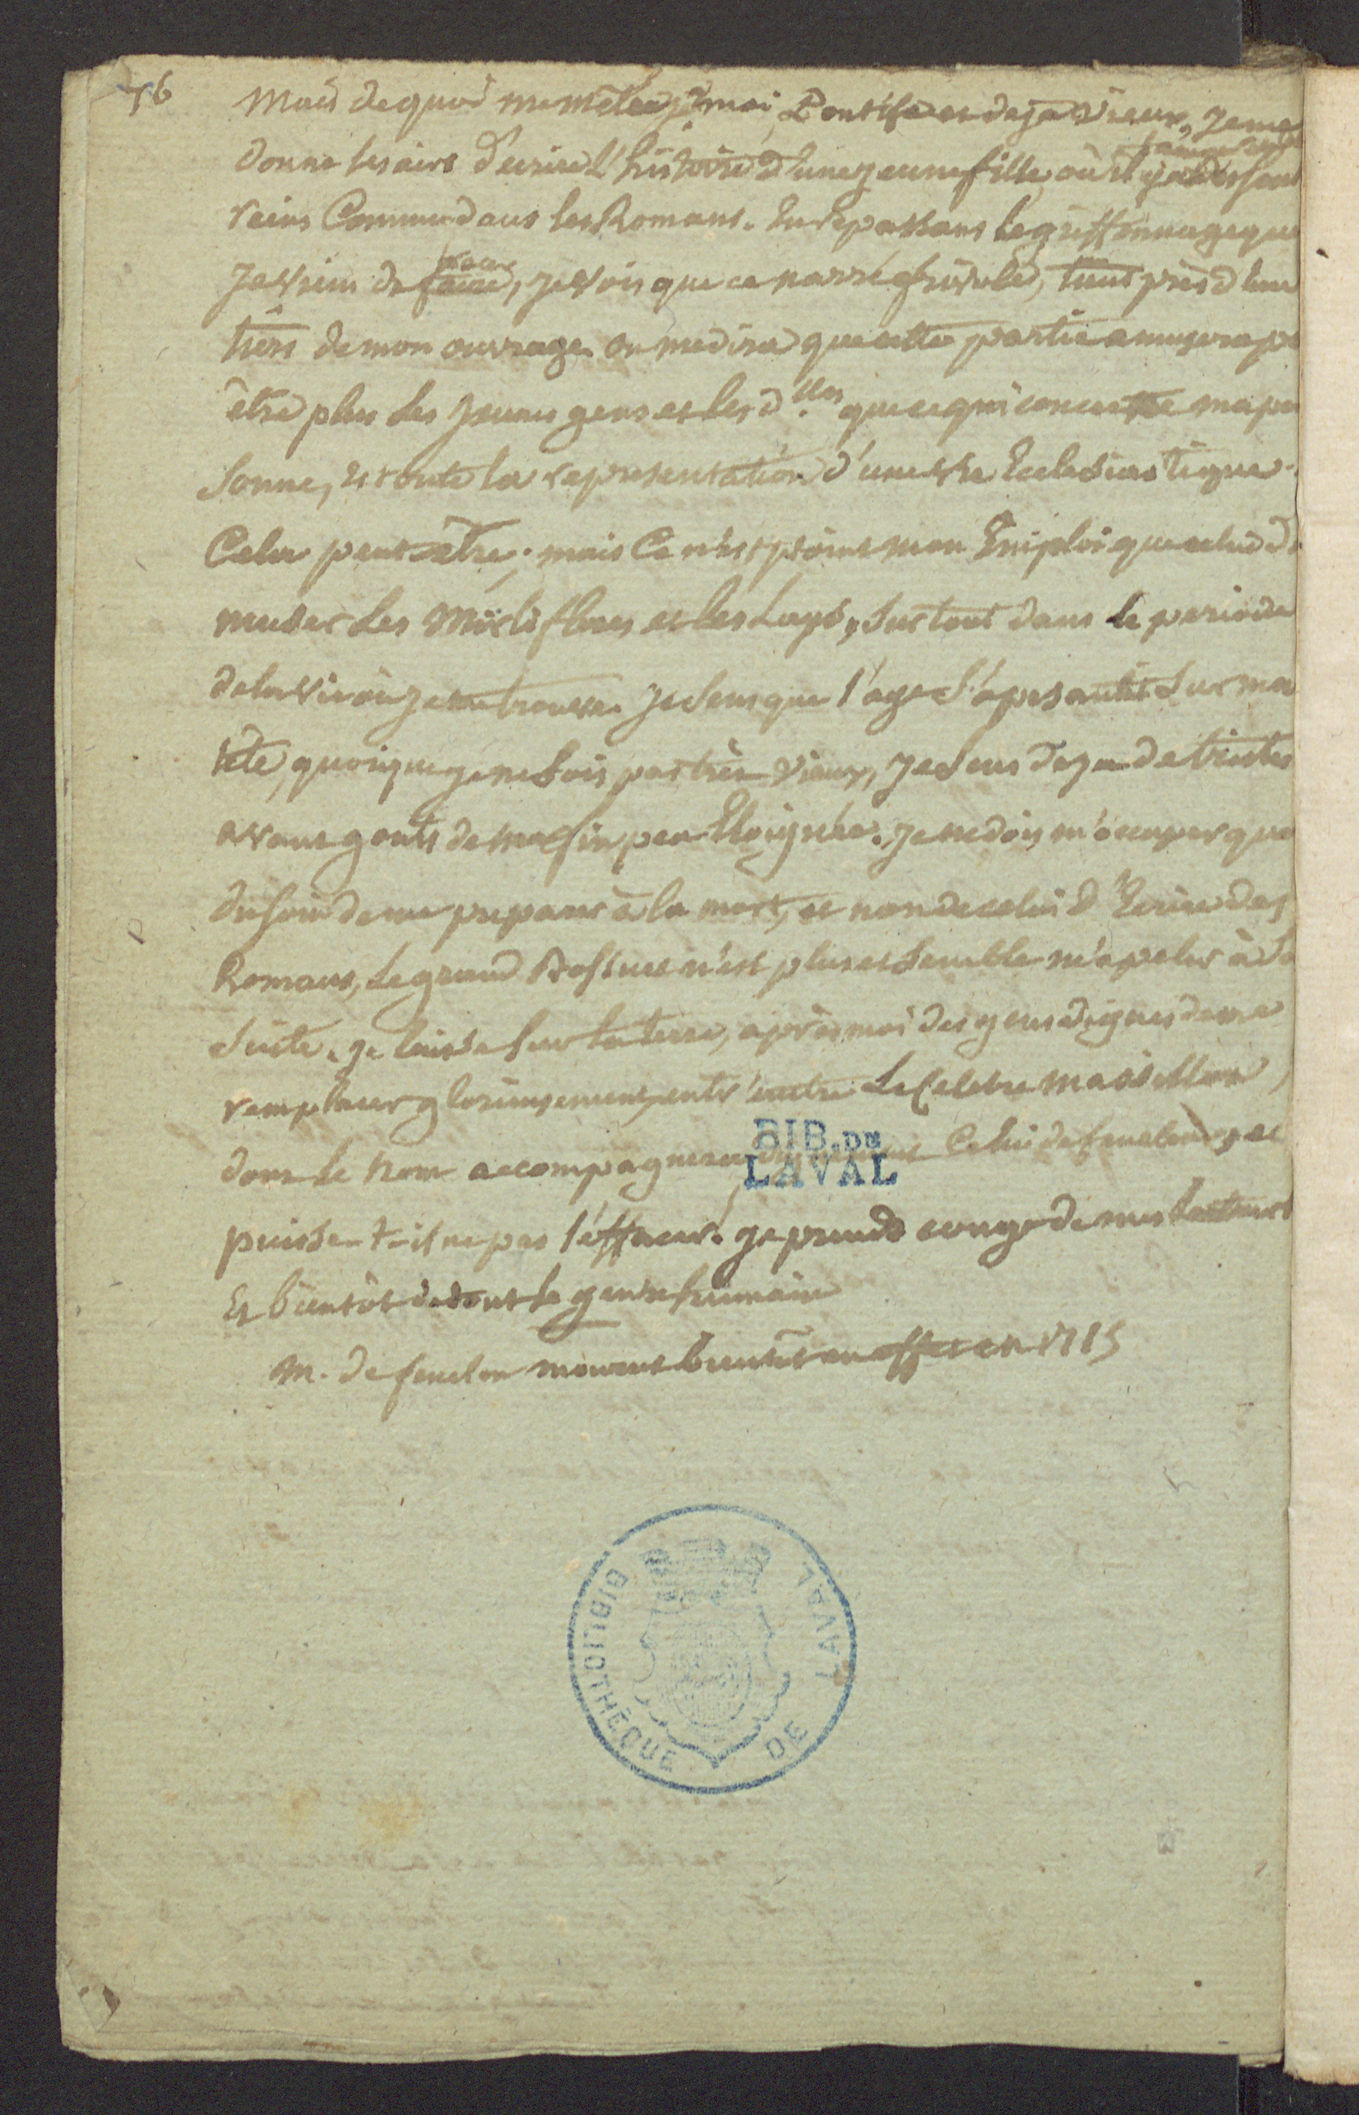 56
Mais de quoi me mêlai je? moi, Pontife et deja vieux, Je me
donne les airs d'ecrire l'histoire d'une jeune fille où il y a des sou
veins Comme dans les Romans. En repassant le griffonnage que
Je viens de faire, je vois que ce narré frivole, tient près d'un
tiers de mon ouvrage. on me dira que cette partie amusera p
être plus les Jeunes gens et les d.lles que ce qui concerne ma per
sonne, et toute la representation d'une vie Ecclesiastique.
Cela peut être. mais Ce n'est point mon Emploi que celui d'
muser les Mirliflores et les Lays, surtout dans le periode
de la vie où je me trouve. Je sens que l'age s'apesantit sur ma
tête, quoique je ne sois pas très vieux, Je sens deja de tristes
avant gouts de ma fin peu Eloignée. Je ne dois m'occuper que
du soin de me preparer à la mort, et non de celui d'Ecrire des
Romans, Le grand Bossuet n'est plus et semble m'apeler à sa
suite. Je laisse sur la terre, après moi des gens dignes de me
remplacer glorieusement, entr'autre Le Celebre Massillon,
dont le nom accompagnera celui de fenelon, et
puisse-t-il ne pas l'effacer! Je prends congé de mes lecteurs
Et bientôt de tout le genre humain
M. de fenelon mourut bientôt en effet en 1715
BIB. DE
LAVAL
BIBLIOTHÈQUE DE LAVAL